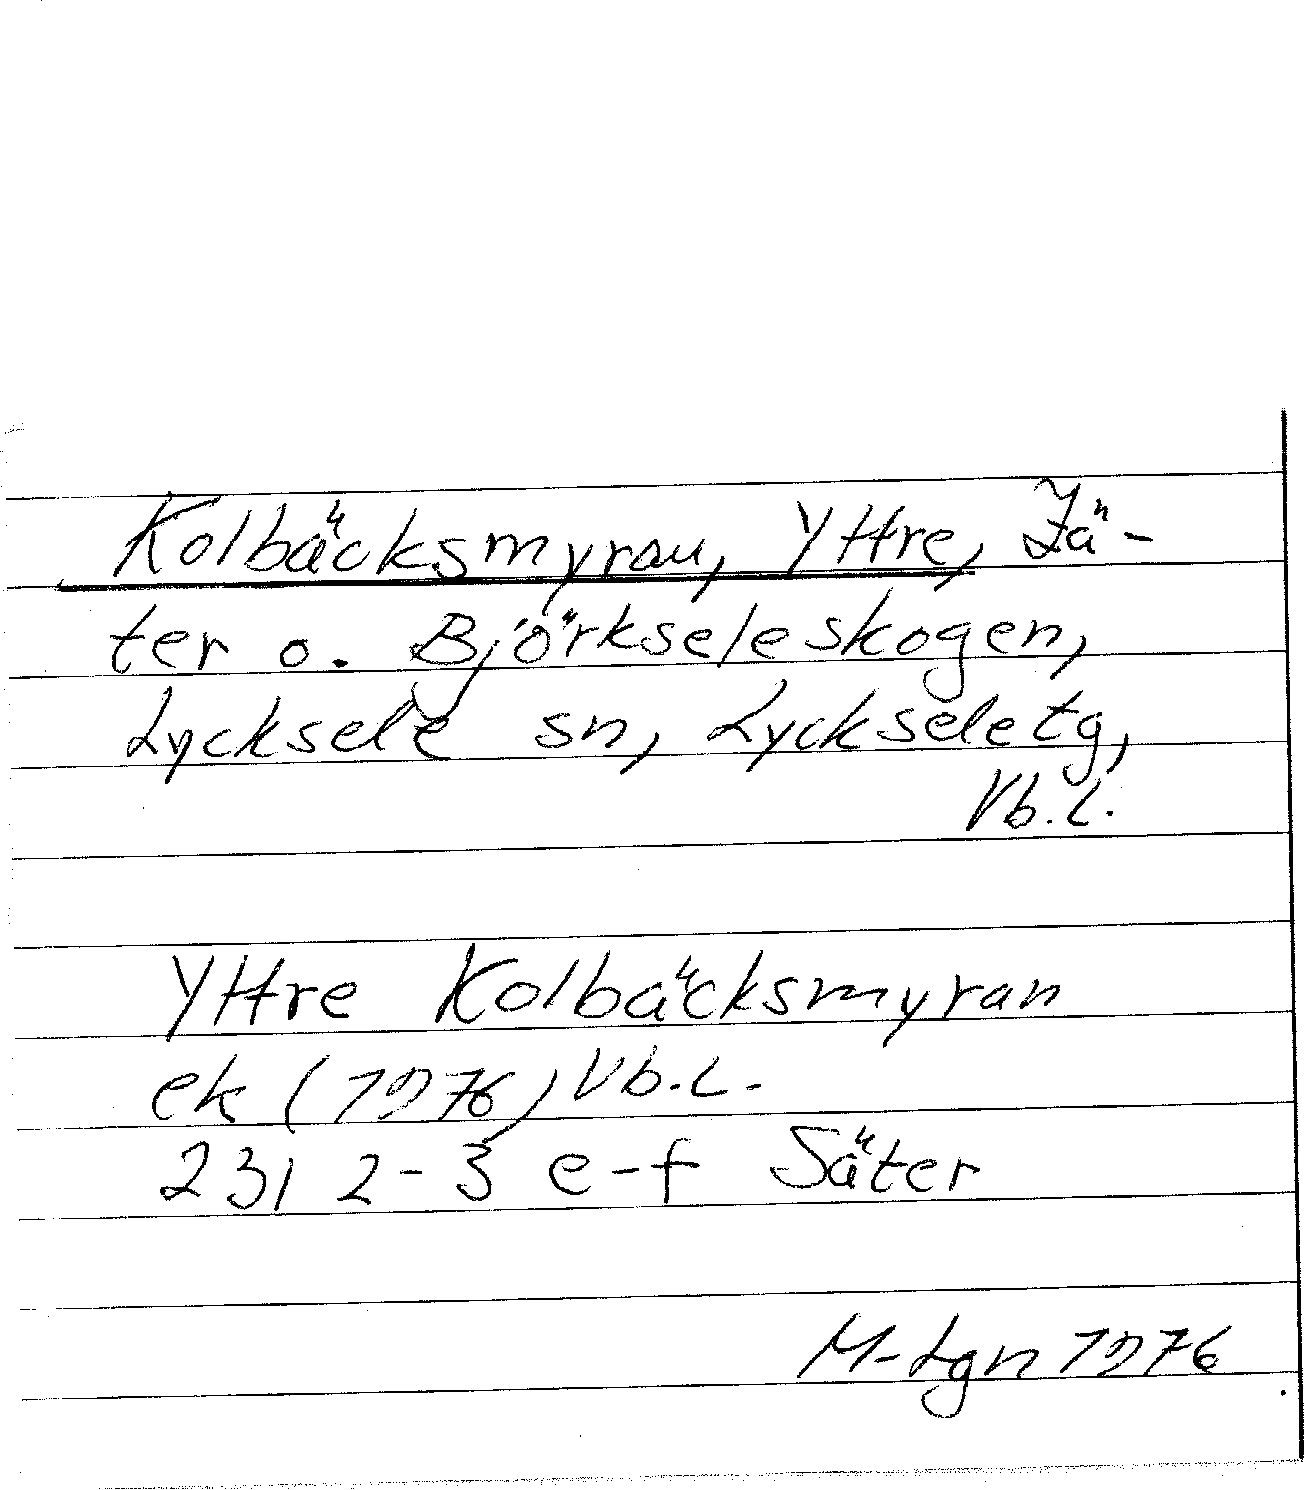 Kolbäcksmyran, Yttre, Sä-
ter o. Björkseleskogen,
Lycksele sn, Lycksele tg,
Vb.L.
Yttre Kolbäcksmyran
ek (1976) Vb.L.
231 2-3 e-f Säter
M-Lgn 1976